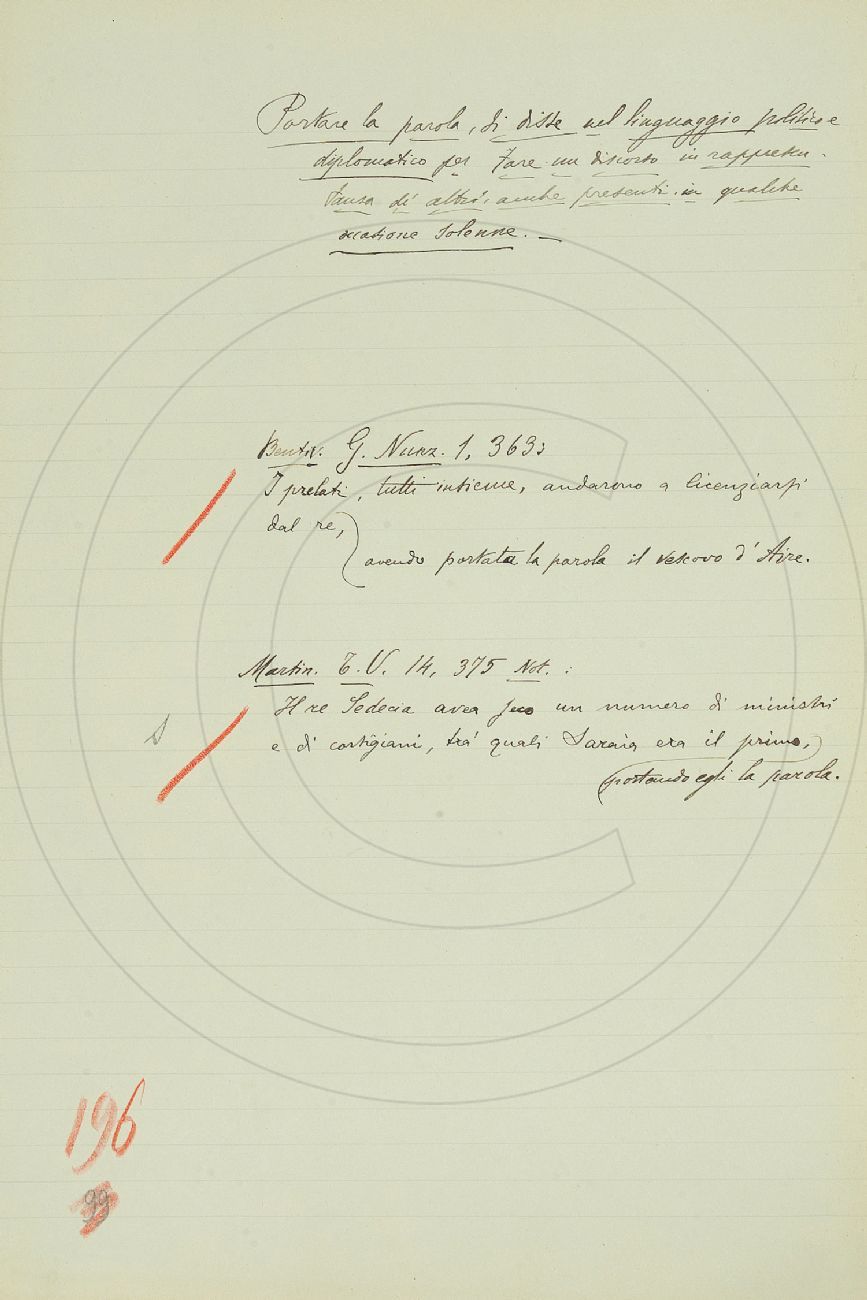 Portare la parola, si disse nel linguaggio politico e
diplomatico per fare un discorso in rappresen-
tanza di altri, anche presenti in qualche
occasione solenne. —
Bentiv. G. Nunz. 1, 363:
I prelati, tutti insieme, andarono a licenziarsi
dal re,
avendo portata la parola il vescovo d'Aire.
Martin. T. V. 14, 375 Not. :
Il re Sedecia avea seco un numero di ministri
e di cortigiani, tra' quali Saraia era il primo,
portando egli la parola.
196
99